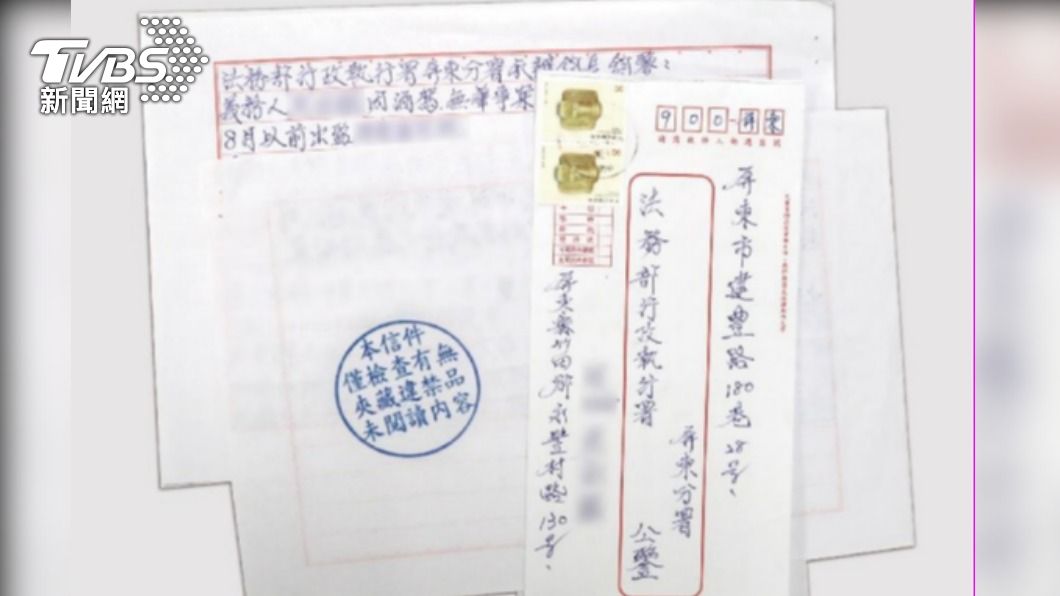 TVBS
新聞網
法務部行政執行署屏東分署承辦股長鈞鑒：
義務人 因酒駕、無牽車案
8月以前出監
本信件
僅檢查有無
夾藏違禁品
未閱讀內容
900-屏東
屏東市建豐路180巷28號、
法務部行政執行署
屏東分署
公鑒
屏東縣竹田鄉永豐村 路130號、